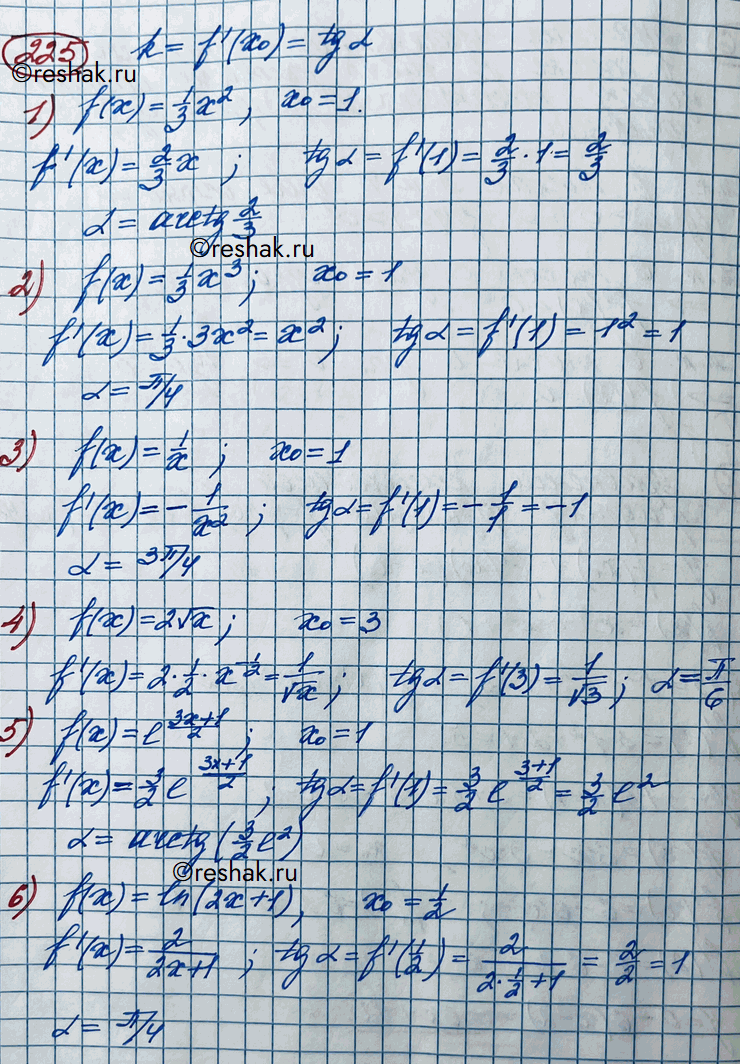 225 k = f'(x₀) = tg α
©reshak.ru
1) f(x) = 1/3 x²; x₀ = 1.
f'(x) = 2/3 x; tg α = f'(1) = 2/3 · 1 = 2/3
α = arctg 2/3
©reshak.ru
2) f(x) = 1/3 x³; x₀ = 1
f'(x) = 1/3 · 3x² = x²; tg α = f'(1) = 1² = 1
α = π/4
3) f(x) = 1/x; x₀ = 1
f'(x) = -1/x²; tg α = f'(1) = -1/1 = -1
α = 3π/4
4) f(x) = 2√x; x₀ = 3
f'(x) = 2 · 1/2 · x^(-1/2) = 1/√x; tg α = f'(3) = 1/√3; α = π/6
5) f(x) = e^((3x+1)/2); x₀ = 1
f'(x) = 3/2 e^((3x+1)/2); tg α = f'(1) = 3/2 e^((3+1)/2) = 3/2 e²
α = arctg(3/2 e²)
©reshak.ru
6) f(x) = ln(2x+1), x₀ = 1/2
f'(x) = 2/(2x+1); tg α = f'(1/2) = 2/(2·1/2+1) = 2/2 = 1
α = π/4